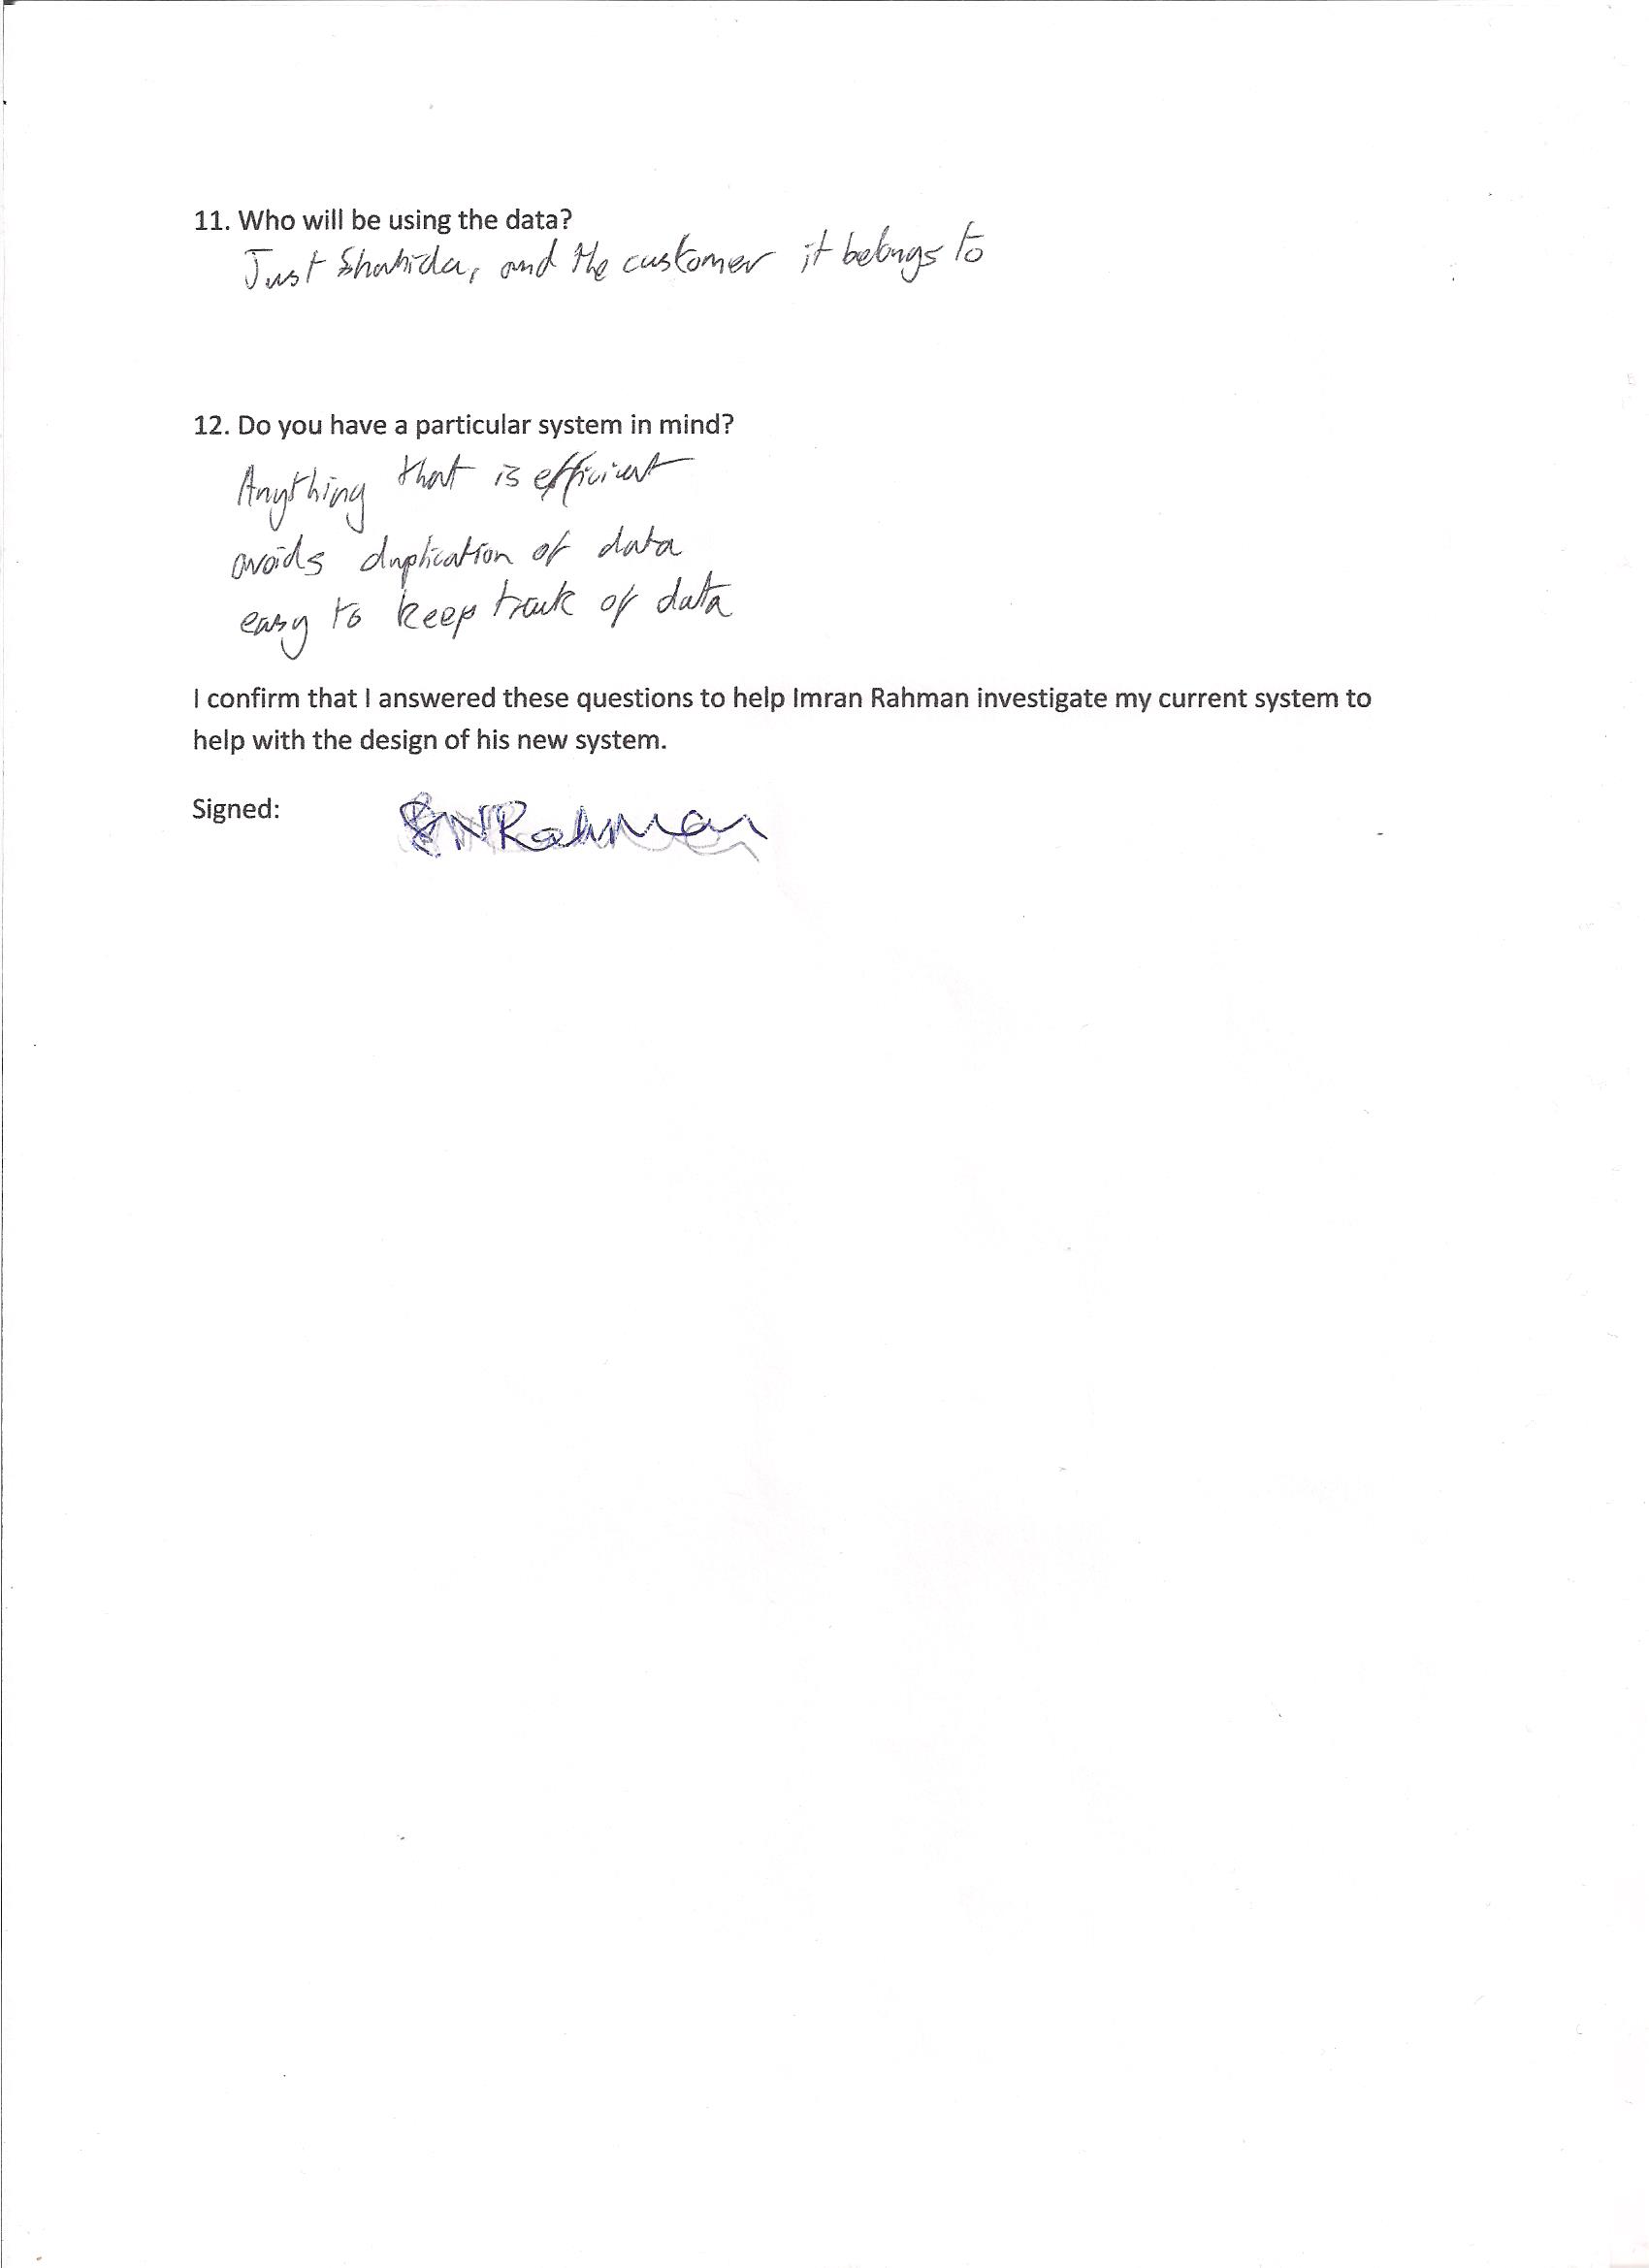 11. Who will be using the data?
Just Shahida, and the customer it belongs to
12. Do you have a particular system in mind?
Anything that is efficient
avoids duplication of data
easy to keep track of data
I confirm that I answered these questions to help Imran Rahman investigate my current system to
help with the design of his new system.
Signed:
SNRahman